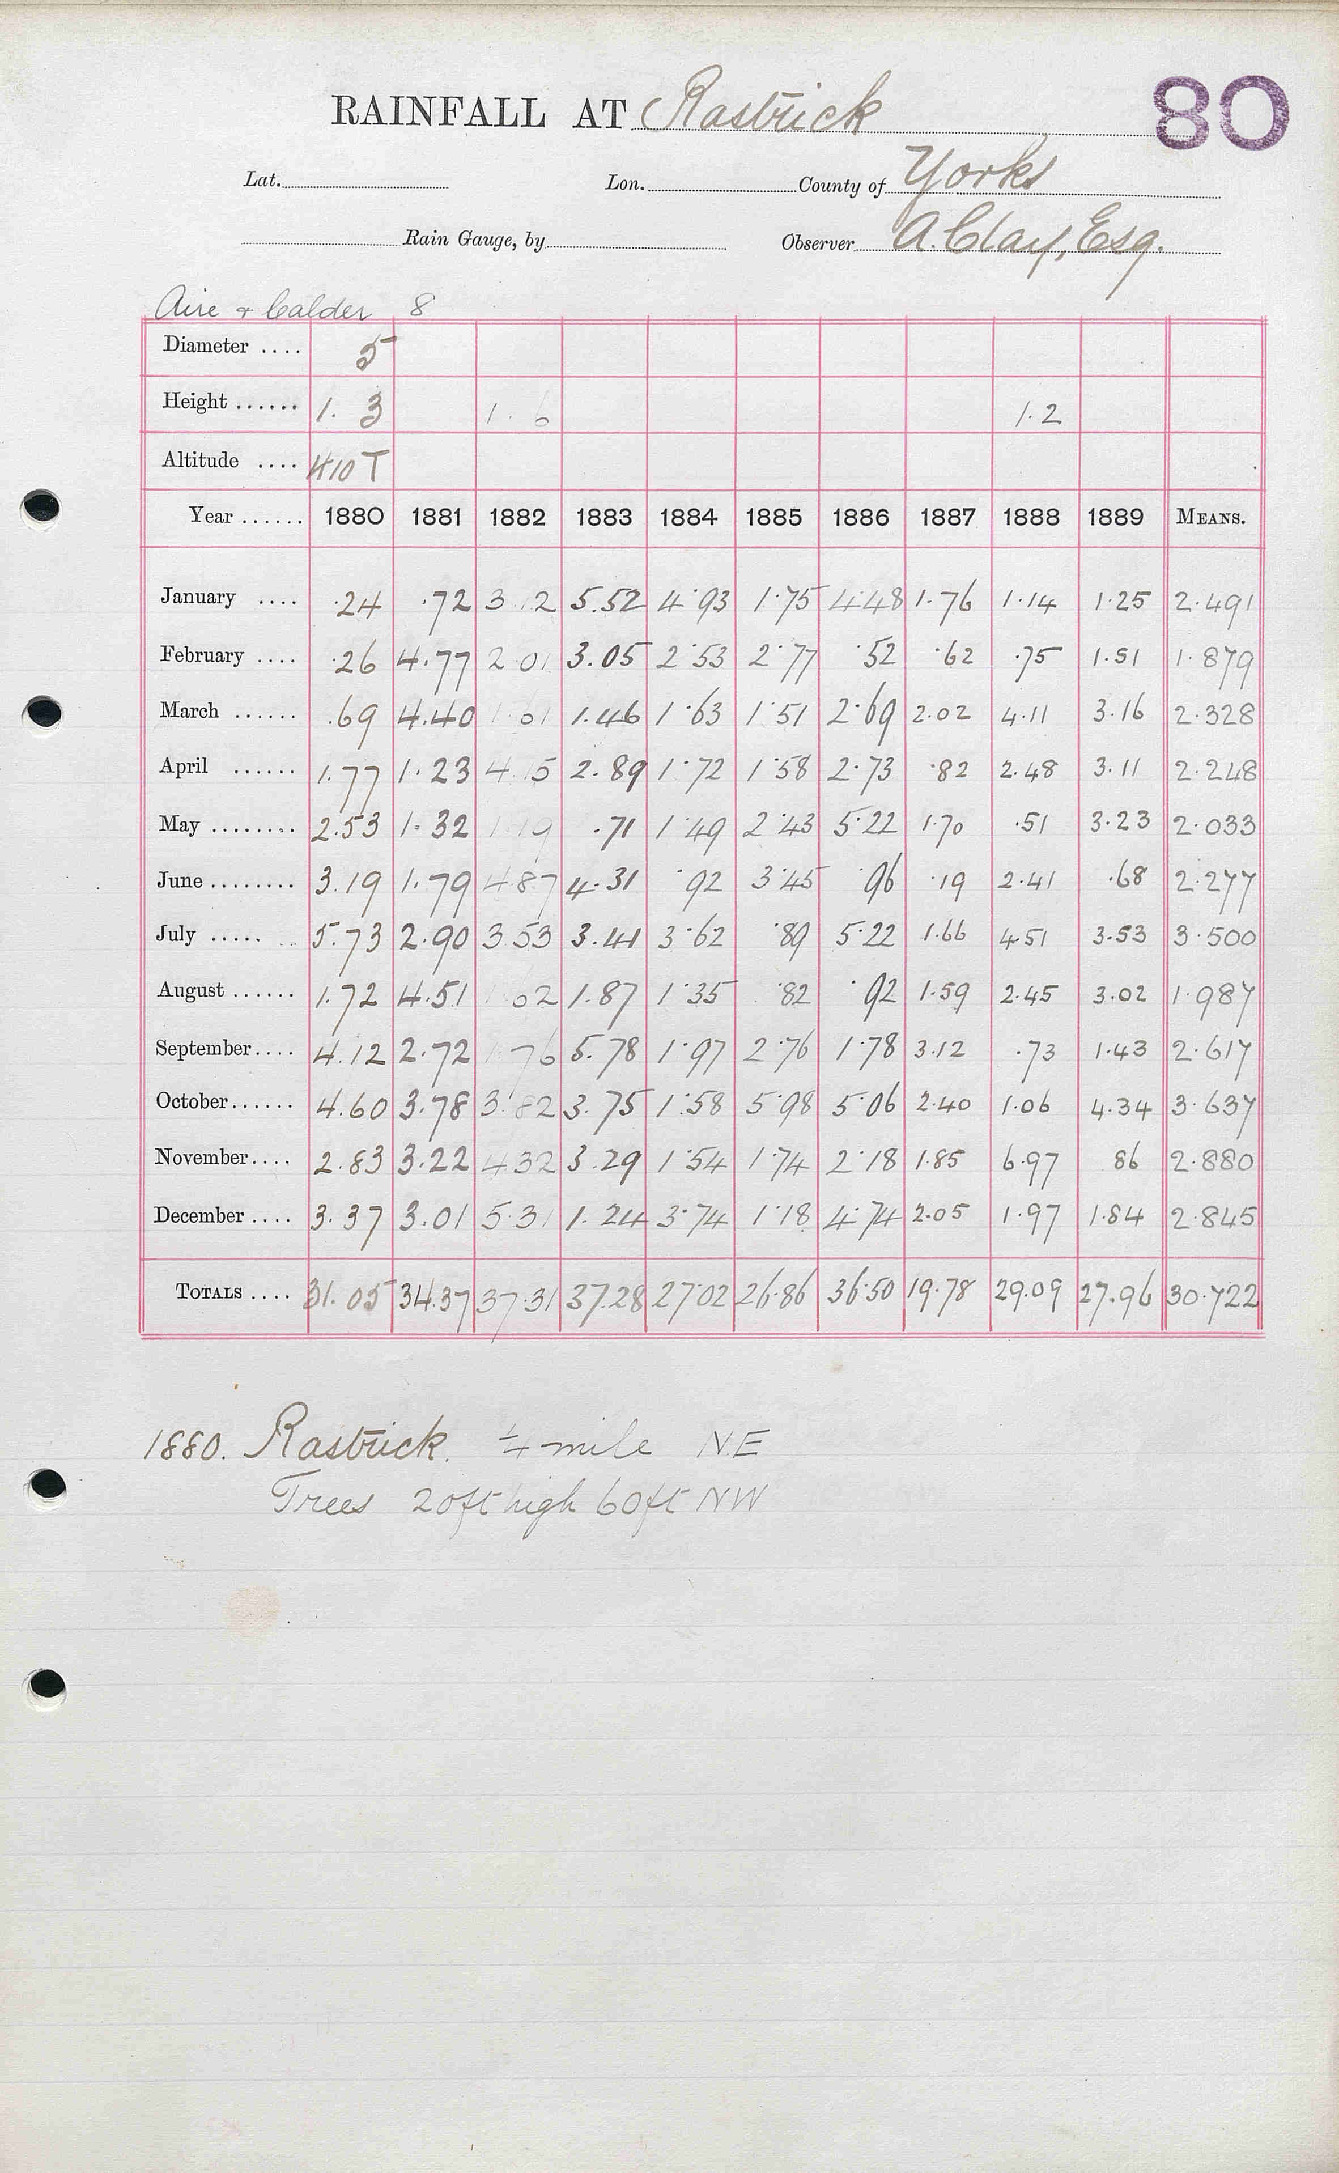 RAINFALL AT Rastrick 80
Lat. Lon. County of Yorks
Rain Gauge, by Observer A. Clay, Esq.
Aire & Calder 8
Diameter .... 5
Height ...... 1. 3 1. 6 1.2
Altitude .... 410 T
Year ...... 1880 1881 1882 1883 1884 1885 1886 1887 1888 1889 MEANS.
January .... .24 .72 3.12 5.52 4.93 1.75 4.48 1.76 1.14 1.25 2.491
February .... .26 4.77 2.01 3.05 2.53 2.77 .52 .62 .75 1.51 1.879
March ...... .69 4.40 1.61 1.46 1.63 1.51 2.69 2.02 4.11 3.16 2.328
April ...... 1.77 1.23 4.15 2.89 1.72 1.58 2.73 .82 2.48 3.11 2.248
May ........ 2.53 1.32 1.19 .71 1.49 2.43 5.22 1.70 .51 3.23 2.033
June ........ 3.19 1.79 4.87 4.31 .92 3.45 .96 .19 2.41 .68 2.277
July ..... .. 5.73 2.90 3.53 3.41 3.62 .89 5.22 1.66 4.51 3.53 3.500
August ...... 1.72 4.51 1.62 1.87 1.35 .82 .92 1.59 2.45 3.02 1.987
September .... 4.12 2.72 1.76 5.78 1.97 2.76 1.78 3.12 .73 1.43 2.617
October ...... 4.60 3.78 3.82 3.75 1.58 5.98 5.06 2.40 1.06 4.34 3.637
November .... 2.83 3.22 4.32 3.29 1.54 1.74 2.18 1.85 6.97 86 2.880
December .... 3.37 3.01 5.31 1.24 3.74 1.18 4.74 2.05 1.97 1.84 2.845
TOTALS .... 31.05 34.37 37.31 37.28 27.02 26.86 36.50 19.78 29.09 27.96 30.722
1880. Rastrick. ¼ mile N.E
Trees 20ft high 60ft NW